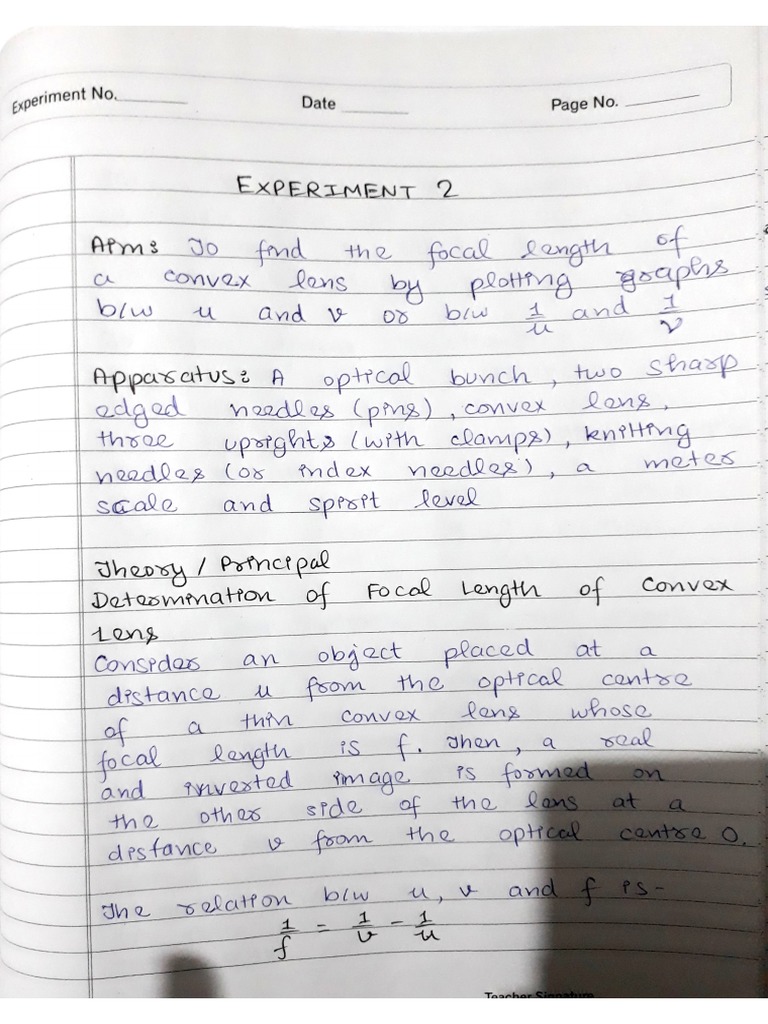 Experiment No.
Date
Page No.
EXPERIMENT 2
Aim: To find the focal length of
a convex lens by plotting graphs
b/w u and v or b/w 1/u and 1/v
Apparatus: A optical bunch, two sharp
edged needles (pins), convex lens,
three uprights (with clamps), knitting
needles (or index needles), a meter
scale and spirit level
Theory / Principal
Determination of Focal Length of Convex
Lens
Consider an object placed at a
distance u from the optical centre
of a thin convex lens whose
focal length is f. Then, a real
and inverted image is formed on
the other side of the lens at a
distance v from the optical centre O.
The relation b/w u, v and f is-
1/f = 1/v - 1/u
Teacher Signature